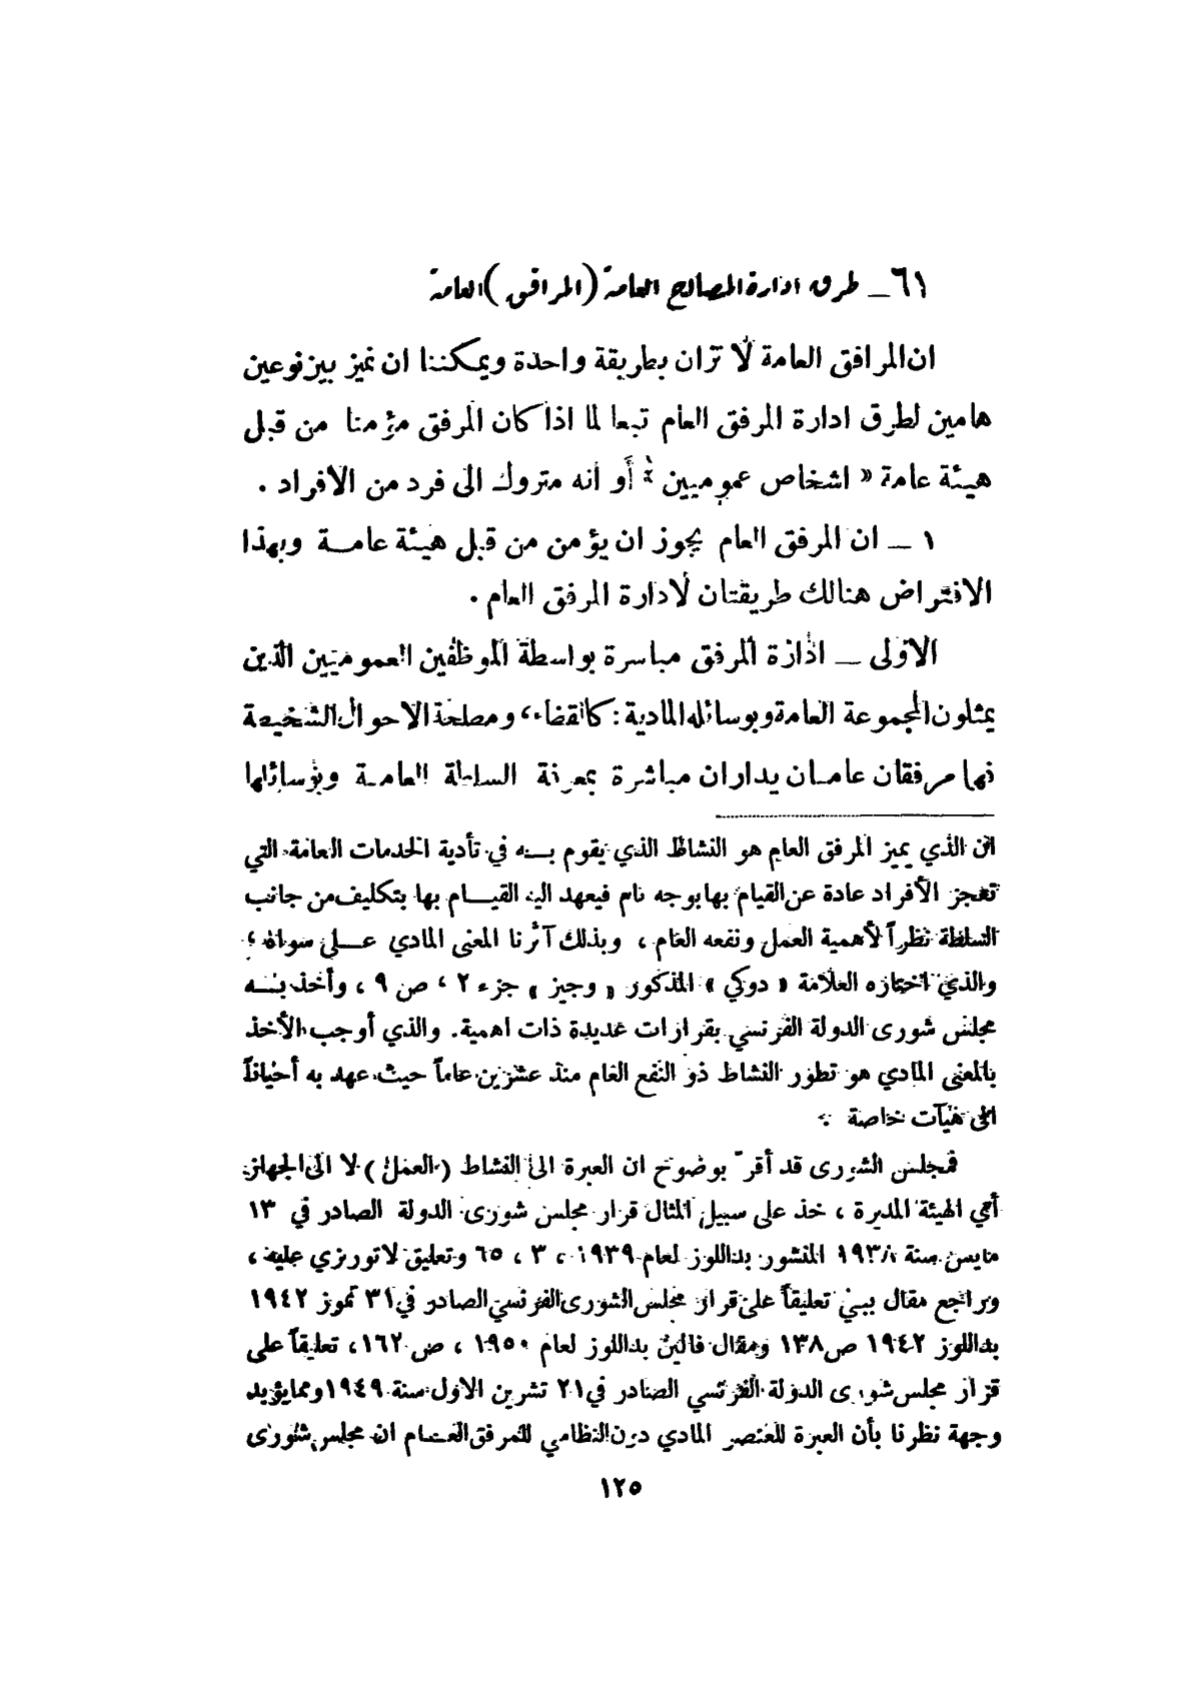 ٦١ـ طرق ادارة المصالح العامة (المرافق) العامة
ان المرافق العامة لا تران بطريقة واحدة ويمكننا ان نميز بين نوعين
هامين لطرق ادارة المرفق العام تبعا لما اذا كان المرفق مؤمنا من قبل
هيئة عامة « اشخاص عموميين » أو انه متروك الى فرد من الافراد .
١ ـ ان المرفق العام يجوز ان يؤمن من قبل هيئة عامـة وبهذا
الافتراض هنالك طريقتان لادارة المرفق العام .
الاولى ـ ادارة المرفق مباسرة بواسطة الموظفين العموميين الذين
يمثلون المجموعة العامة وبوسائله المادية : كالقضاء ، ومصلحة الاحوال الشخيصة
فهما مرفقان عامـان يداران مباشرة بمعرفة السلطة العامـة وبوسائلها
ان الذي يميز المرفق العام هو النشاط الذي يقوم بـه في تأدية الخدمات العامة التي
تعجز الأفراد عادة عن القيام بها بوجه تام فيعهد اليه القيـام بها بتكليف من جانب
السلطة نظراً لأهمية العمل ونفعه العام ، وبذلك آثرنا المعنى المادي عـلى سواه ؛
والذي اختاره العلامة « دوكي » المذكور « وجيز » جزء ٢ ، ص ٩ ، وأخذ بـه
مجلس شورى الدولة الفرنسي بقرارات عديدة ذات اهمية . والذي أوجب الأخذ
بالمعنى المادي هو تطور النشاط ذو النفع العام منذ عشرين عاماً حيث عهد به أحياناً
الى هيآت خاصة .
فمجلس الشورى قد أقرّ بوضوح ان العبرة الى النشاط ( العمل ) لا الى الجهاز
أي الهيئة المديرة ، خذ على سبيل المثال قرار مجلس شورى الدولة الصادر في ١٣
مايس سنة ١٩٣٨ المنشور بداللوز لعام ١٩٣٩ ، ٣ ، ٦٥ وتعليق لاتورنزي عليه ،
وراجع مقال بيني تعليقاً على قرار مجلس الشورى الفرنسي الصادر في ٣١ تموز ١٩٤٢
بداللوز ١٩٤٢ ص ١٣٨ ومقال فالين بداللوز لعام ١٩٥٠ ، ص ١٦٢ ، تعليقاً على
قرار مجلس شورى الدولة الفرنسي الصادر في ٢١ تشرين الاول سنة ١٩٤٩ ومما يؤيد
وجهة نظرنا بأن العبرة للعنصر المادي دون النظامي للمرفق العـام ان مجلس شورى
١٢٥